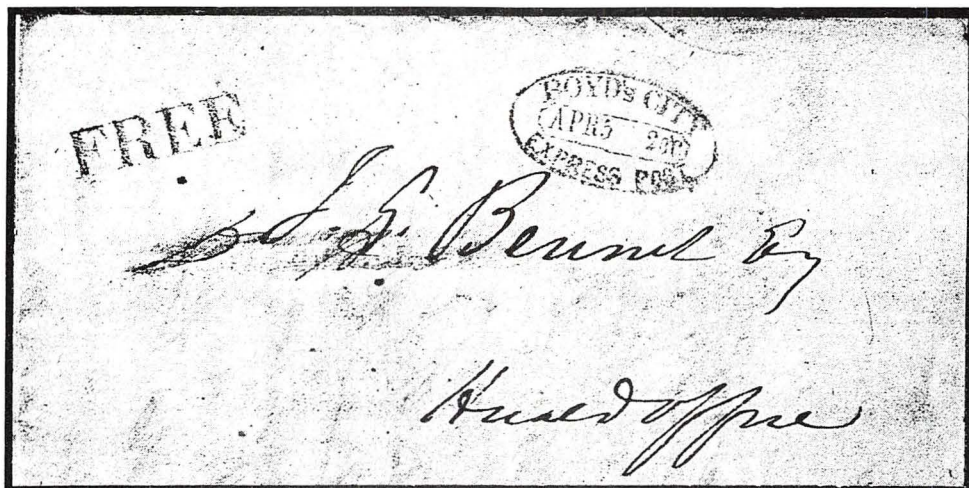 FREE
BOYD'S CITY
APR 5
EXPRESS POST
J. G. Bennet Esq
Herald office